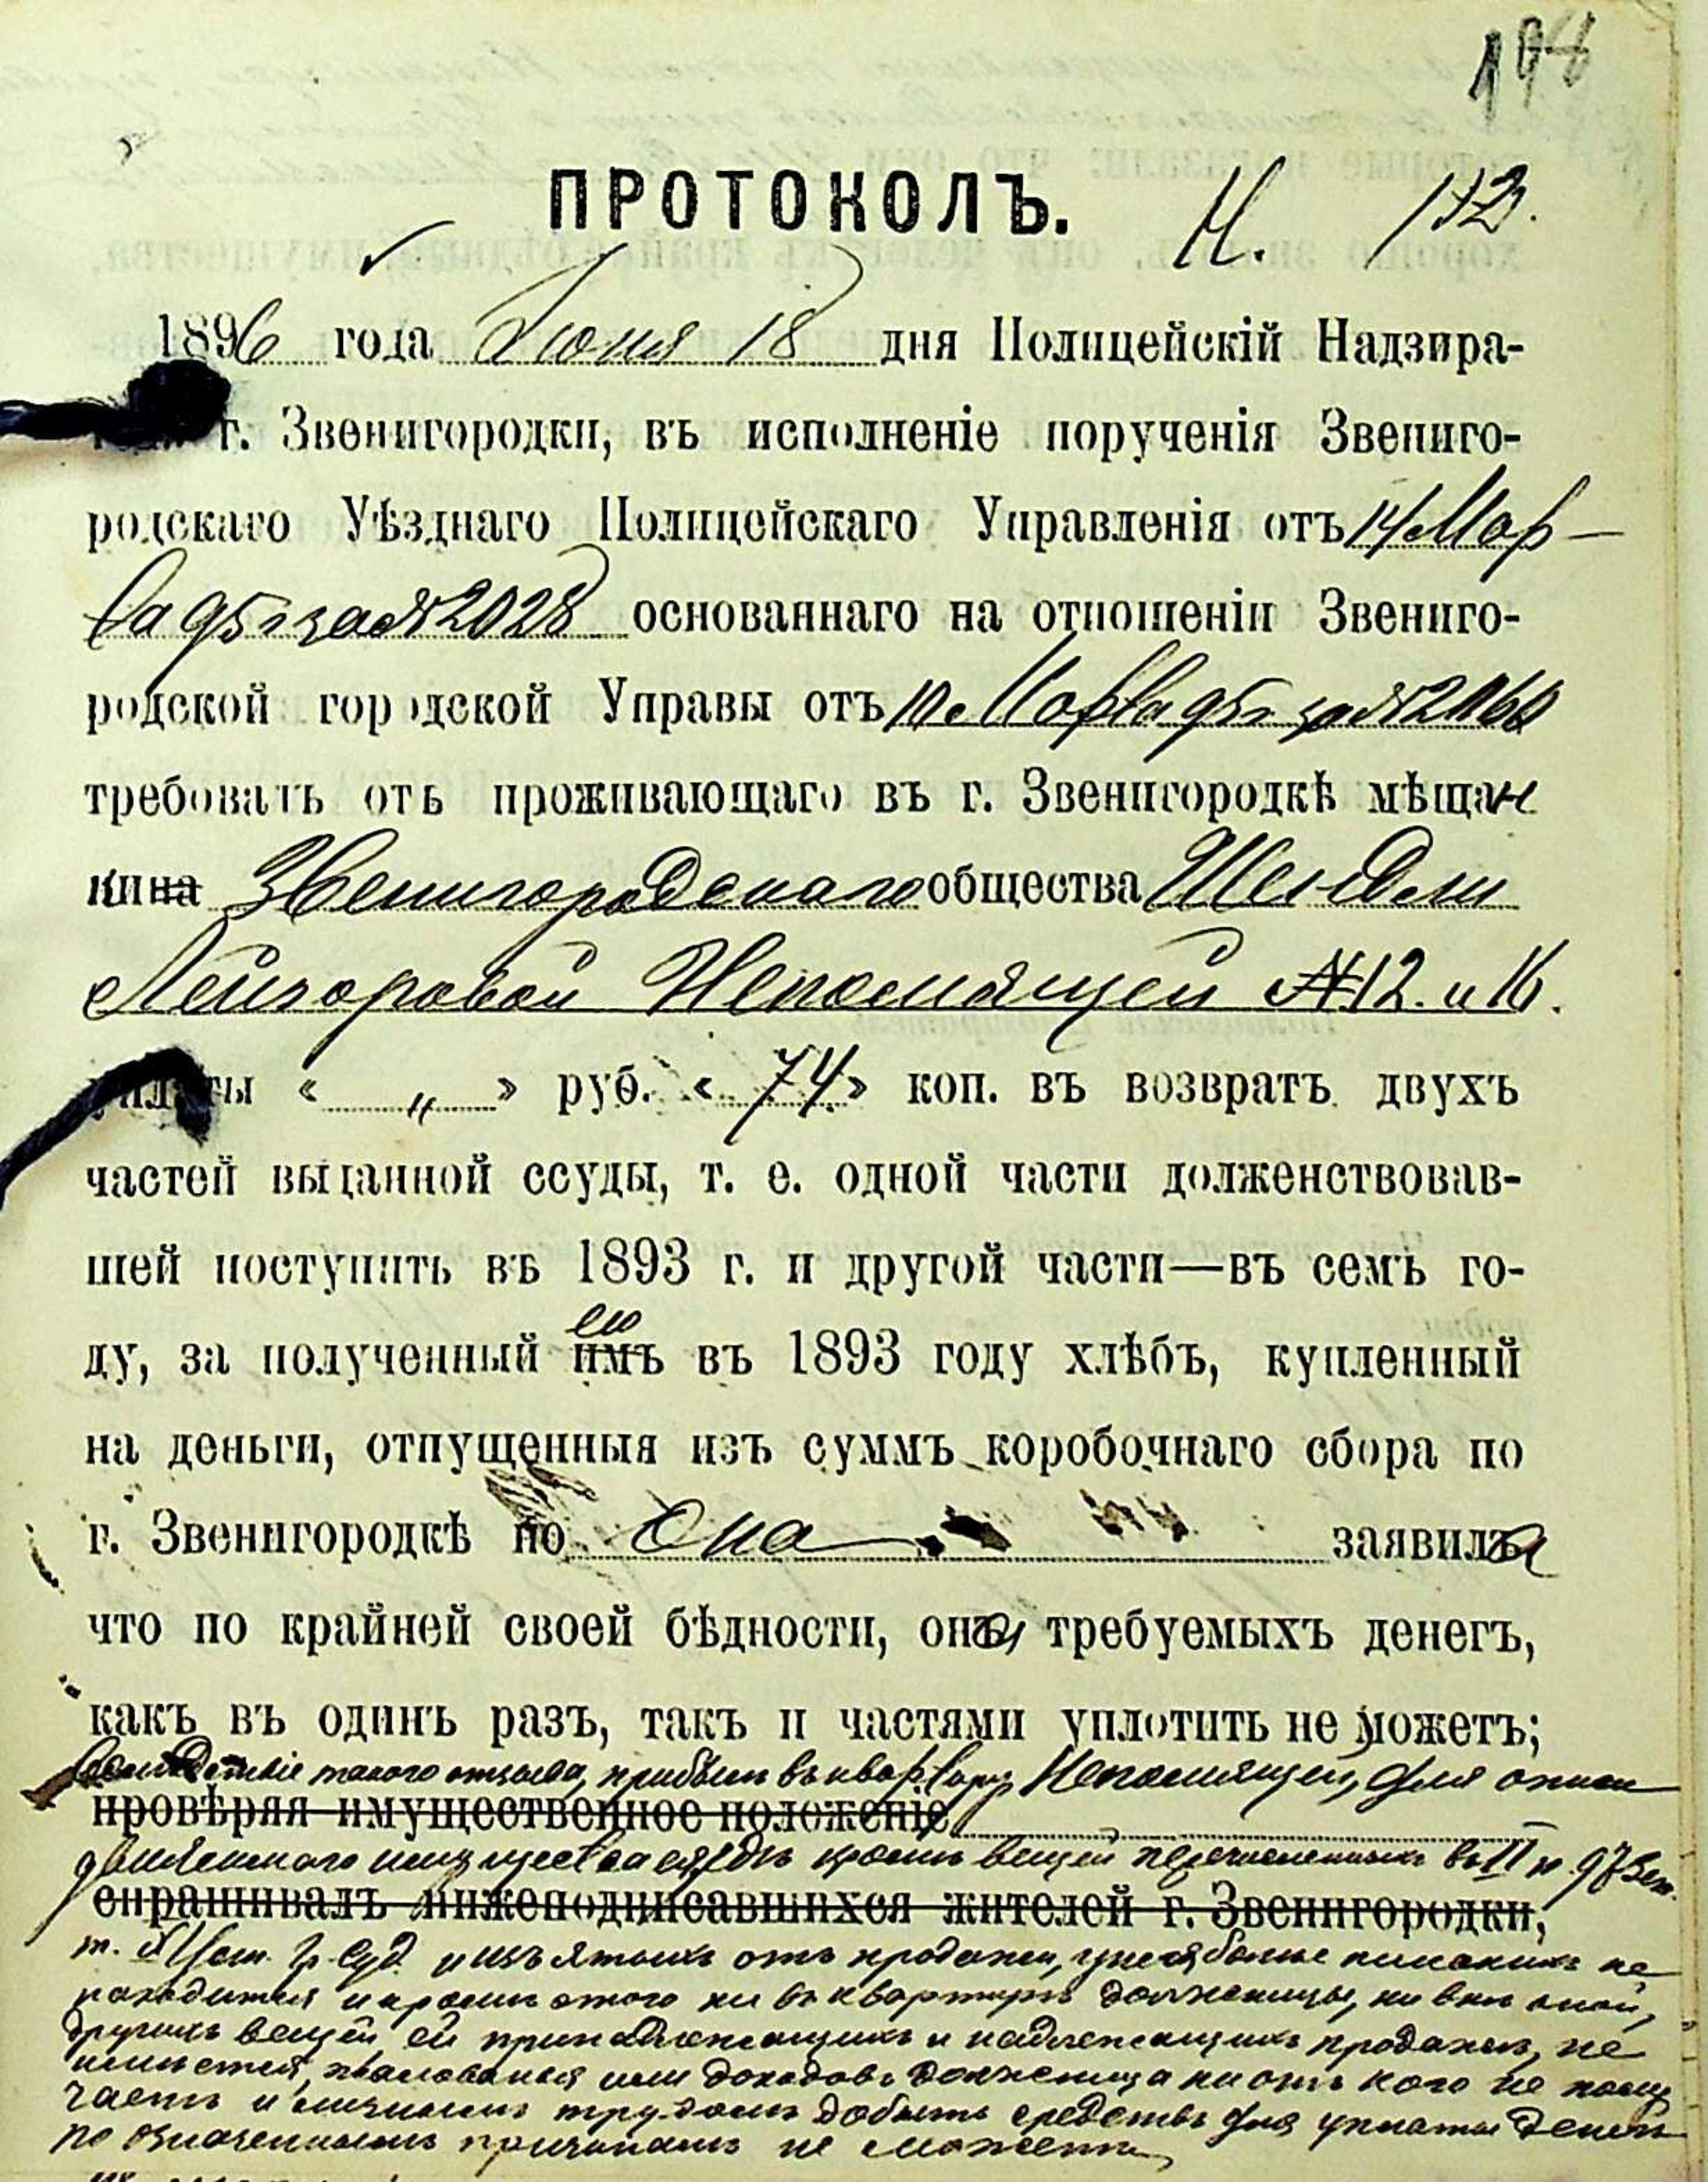 198
ПРОТОКОЛЪ. Н. 132.
1896 года Іюня 18 дня Полицейскій Надзира-
г. Звенигородки, въ исполненіе порученія Звениго-
родскаго Уѣзднаго Полицейскаго Управленія отъ 14 Мар-
та 95 г за № 2028 основаннаго на отношеніи Звениго-
родской городской Управы отъ 10 Марта 95 г за №
требовать отъ проживающаго въ г. Звенигородкѣ мѣщан
кина Звенигородскаго общества Шендли
Лейзоровой Непомнящей № 12. и 16.
уплаты « „ » руб. « 74 » коп. въ возвратъ двухъ
частей выданной ссуды, т. е. одной части долженствовав-
шей поступить въ 1893 г. и другой части—въ семъ го-
ду, за полученный имъ ею въ 1893 году хлѣбъ, купленный
на деньги, отпущенныя изъ суммъ коробочнаго сбора по
г. Звенигородкѣ но Она заявила
что по крайней своей бѣдности, она требуемыхъ денегъ,
какъ въ одинъ разъ, такъ и частями уплотить не можетъ;
Вслѣдствіе такого отзыва, прибылъ въ квартиру Непомнящей, для описи
провѣряя имущественное положеніе
движимаго имущества кромѣ вещей перечисленныхъ въ II п. 973 ст.
спрашивалъ нижеподписавшихся жителей г. Звенигородки,
т. Уст. Гр. Суд. и изъятыхъ отъ продажи, болѣе никакихъ не
находится и кромѣ этого ни въ квартирѣ должницы, ни внѣ оной,
другихъ вещей ей принадлежащихъ и надлежащихъ продажѣ, не
имѣется, жалованья или доходовъ должница ни отъ кого не полу
чаетъ и личнымъ трудомъ добыть средствъ для уплаты денегъ
по означеннымъ причинамъ не можетъ,